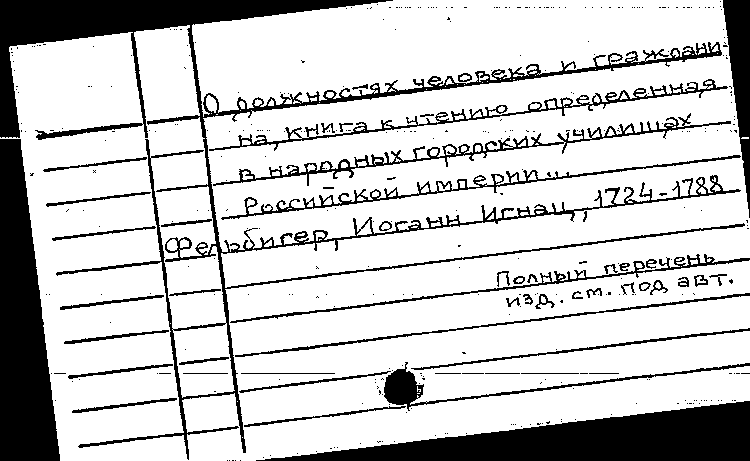 О должностях человека и граждани-
на, книга к чтению определенная
в народных городских училищах
Российской империи...
Фельбигер, Иоганн Игнац, 1724-1788
Полный перечень
изд. см. под авт.